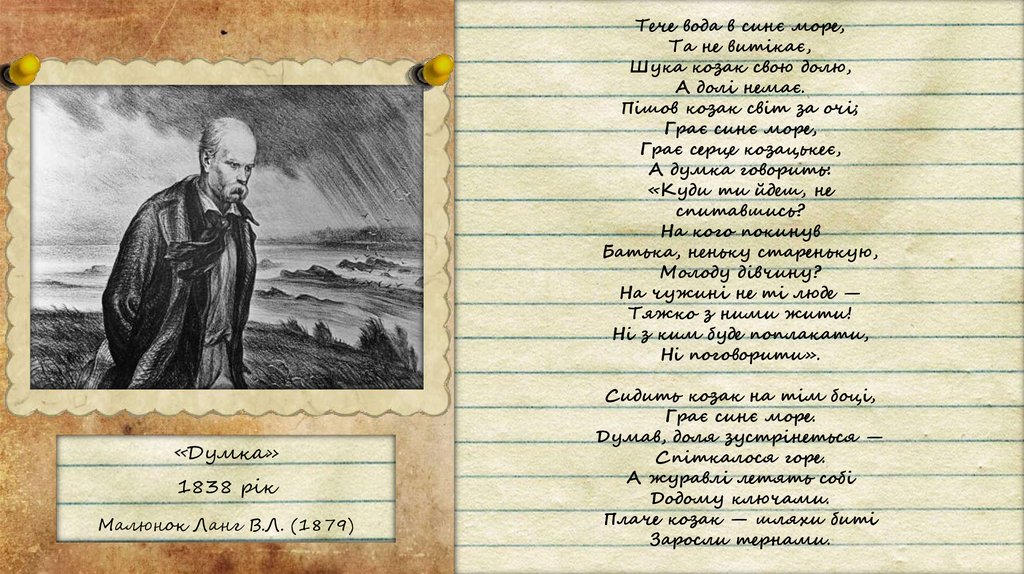 «Думка»
1838 рік
Малюнок Ланг В.Л. (1879)
Тече вода в синє море,
Та не витікає,
Шука козак свою долю,
А долі немає.
Пішов козак світ за очі;
Грає синє море,
Грає серце козацькеє,
А думка говорить:
«Куди ти йдеш, не
спитавшись?
На кого покинув
Батька, неньку старенькую,
Молоду дівчину?
На чужині не ті люде —
Тяжко з ними жити!
Ні з ким буде поплакати,
Ні поговорити».
Сидить козак на тім боці,
Грає синє море.
Думав, доля зустрінеться —
Спіткалося горе.
А журавлі летять собі
Додому ключами.
Плаче козак — шляхи биті
Заросли тернами.